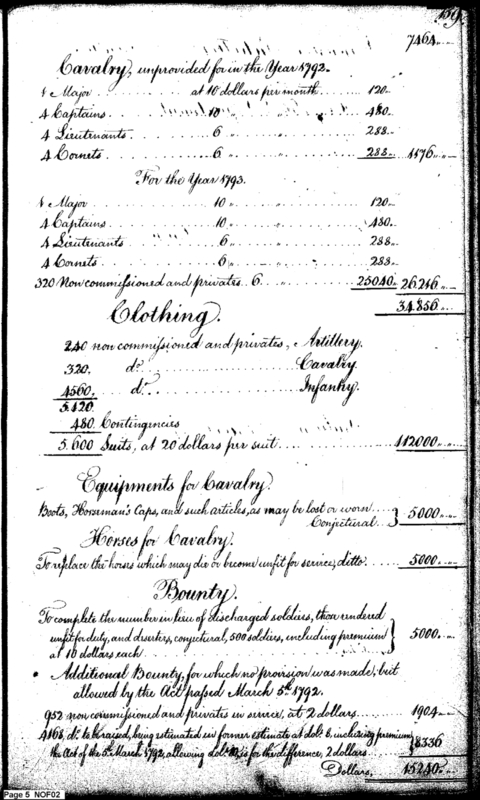 159.
7464..
Cavalry, unprovided for in the Year 1792.
1 Major at 10 dollars per month 120..
4 Captains 10 " " 480..
4 Lieutenants 6 " " 288..
4 Cornets 6 " " 288.. 1176..
For the Year 1793.
1 Major 10 " " 120..
4 Captains 10 " " 480..
4 Lieutenants 6 " " 288..
4 Cornets 6 " " 288..
320 Non commissioned and privates 6 " " 25040.. 26.216..
34.856..
Clothing.
240 non commissioned and privates, Artillery.
320. do. Cavalry.
4560. do. Infantry.
5.120.
480 Contingencies
5.600 Suits, at 20 dollars per suit 112000..
Equipments for Cavalry.
Boots, Horseman's Caps, and such articles, as may be lost or worn
Conjectural } 5000..
Horses for Cavalry.
To replace the horses which may die or become unfit for service, ditto 5000..
Bounty.
To complete the number in lieu of discharged soldiers, those rendered
unfit for duty, and deserters, conjectural, 500 soldiers, including premium } 5000..
at 10 dollars each
Additional Bounty, for which no provision was made, but
allowed by the Act passed March 5th 1792.
952 non commissioned and privates in service, at 2 dollars 1904..
4168, do. to be raised, being estimated in former estimate at dols. 6, including premium
the Act of the 5th March 1792, allowing dols. is for the difference, 2 dollars } 8336
Dollars, 15240..
Page 5 NOF02